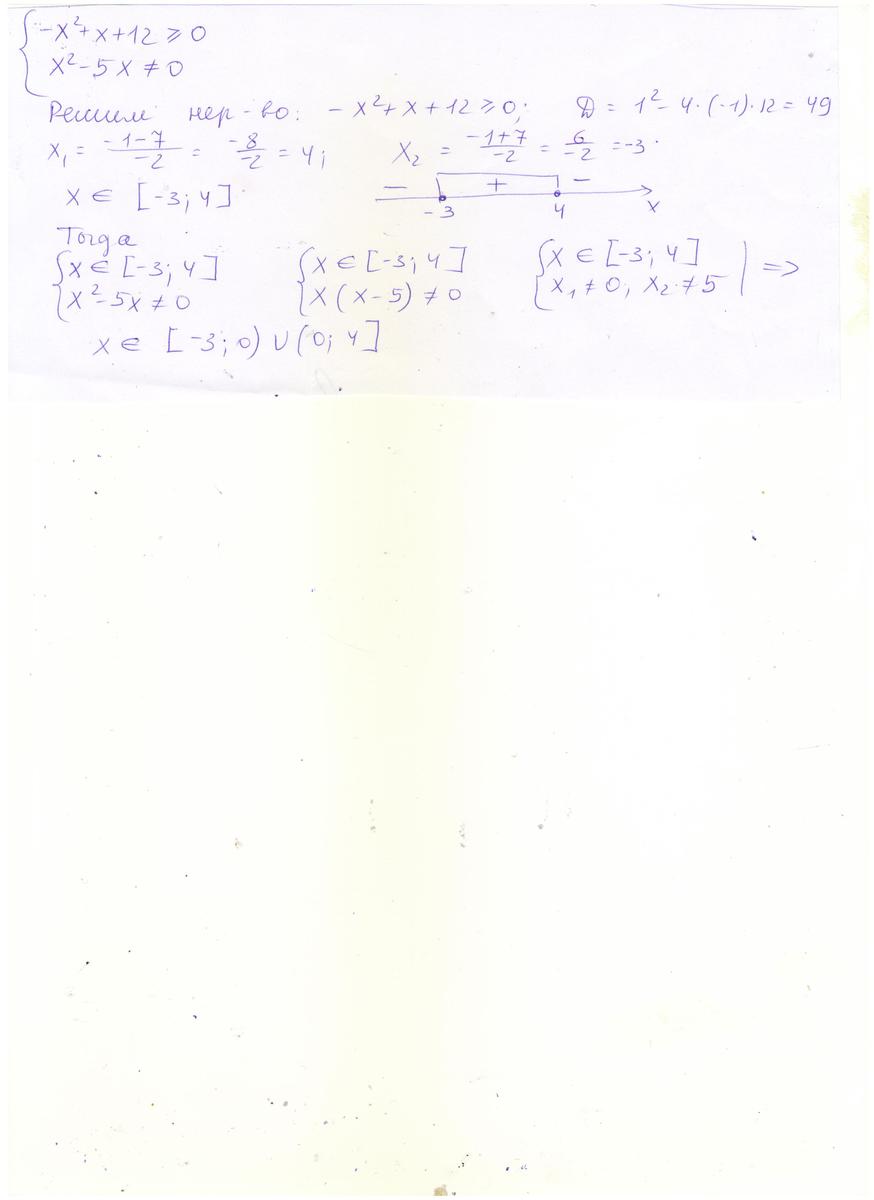 { -x²+x+12 ≥ 0
x²-5x ≠ 0
Решим нер-во: -x²+x+12 ≥ 0; D = 1²-4·(-1)·12 = 49
x₁ = (-1-7)/(-2) = (-8)/(-2) = 4; x₂ = (-1+7)/(-2) = 6/(-2) = -3.
x ∈ [-3; 4] - + -
-3 4 x
Тогда
{ x ∈ [-3; 4] { x ∈ [-3; 4] { x ∈ [-3; 4] | =>
x²-5x ≠ 0 x(x-5) ≠ 0 x₁ ≠ 0, x₂ ≠ 5
x ∈ [-3; 0) ∪ (0; 4]